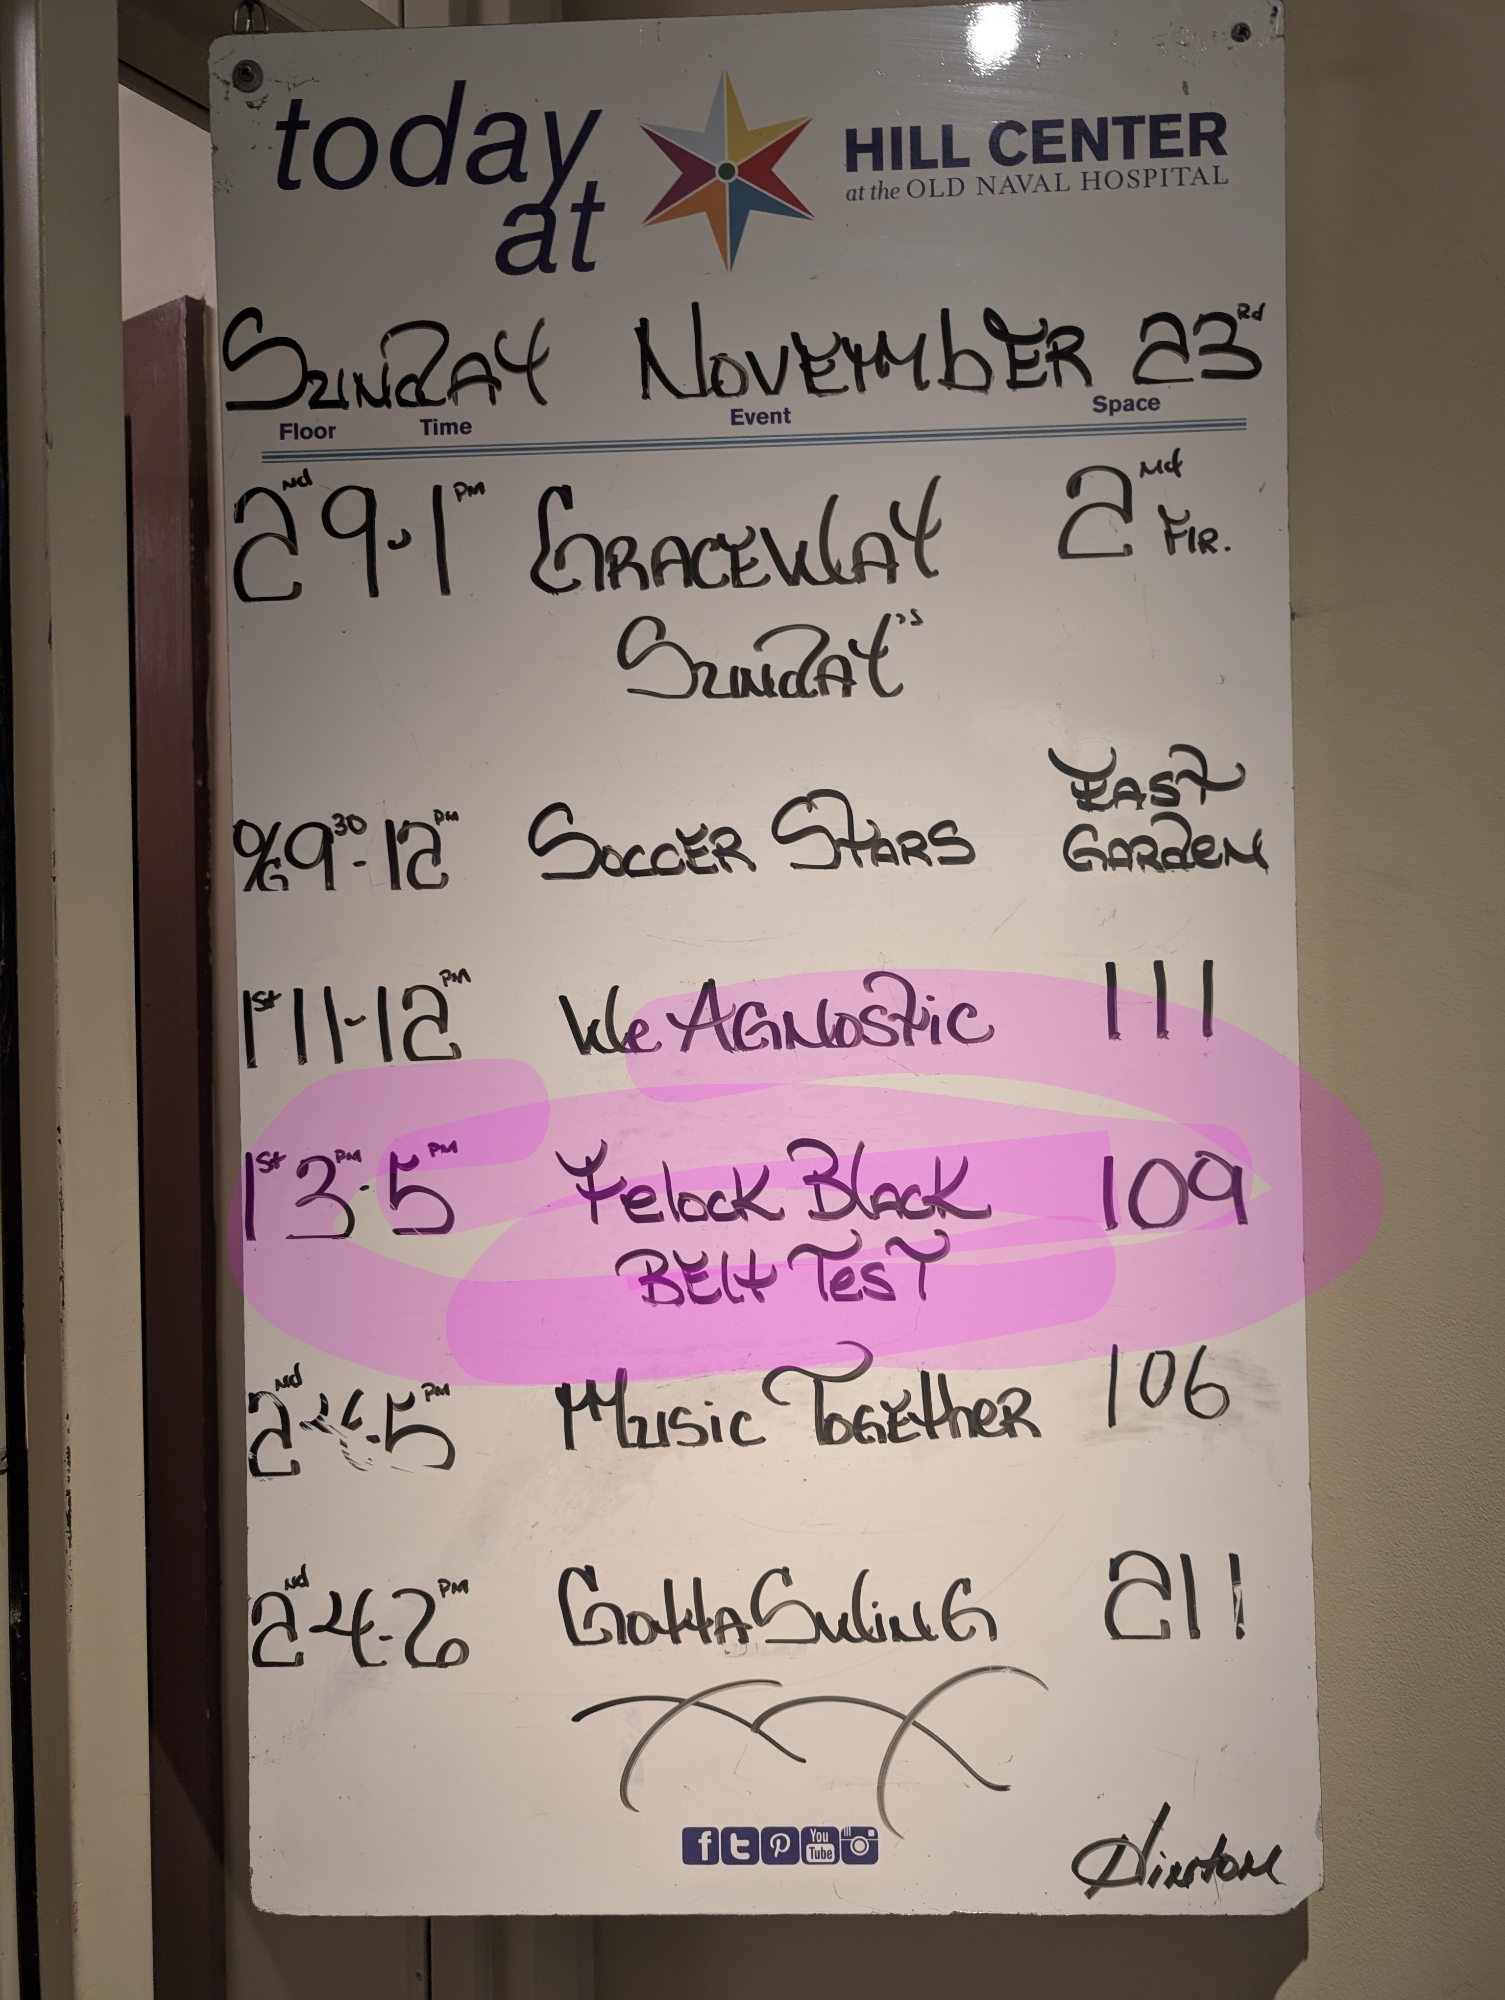 today
at
HILL CENTER
at the OLD NAVAL HOSPITAL
SUNDAY NOVEMBER 23Rd
Floor Time Event Space
2Nd 9-1PM GRACEWAY 2Nd FlR.
SUNDAY'S
O/G 930-12PM SOCCER STARS EAST
GARdEN
1St 11-12PM We AGNOSTiC 111
1St 3PM-5PM Yelock Black 109
BElt TesT
2Nd 4-5PM Music TOGEtheR 106
2Nd 4-6PM GottA SwinG 211
f t P You Tube